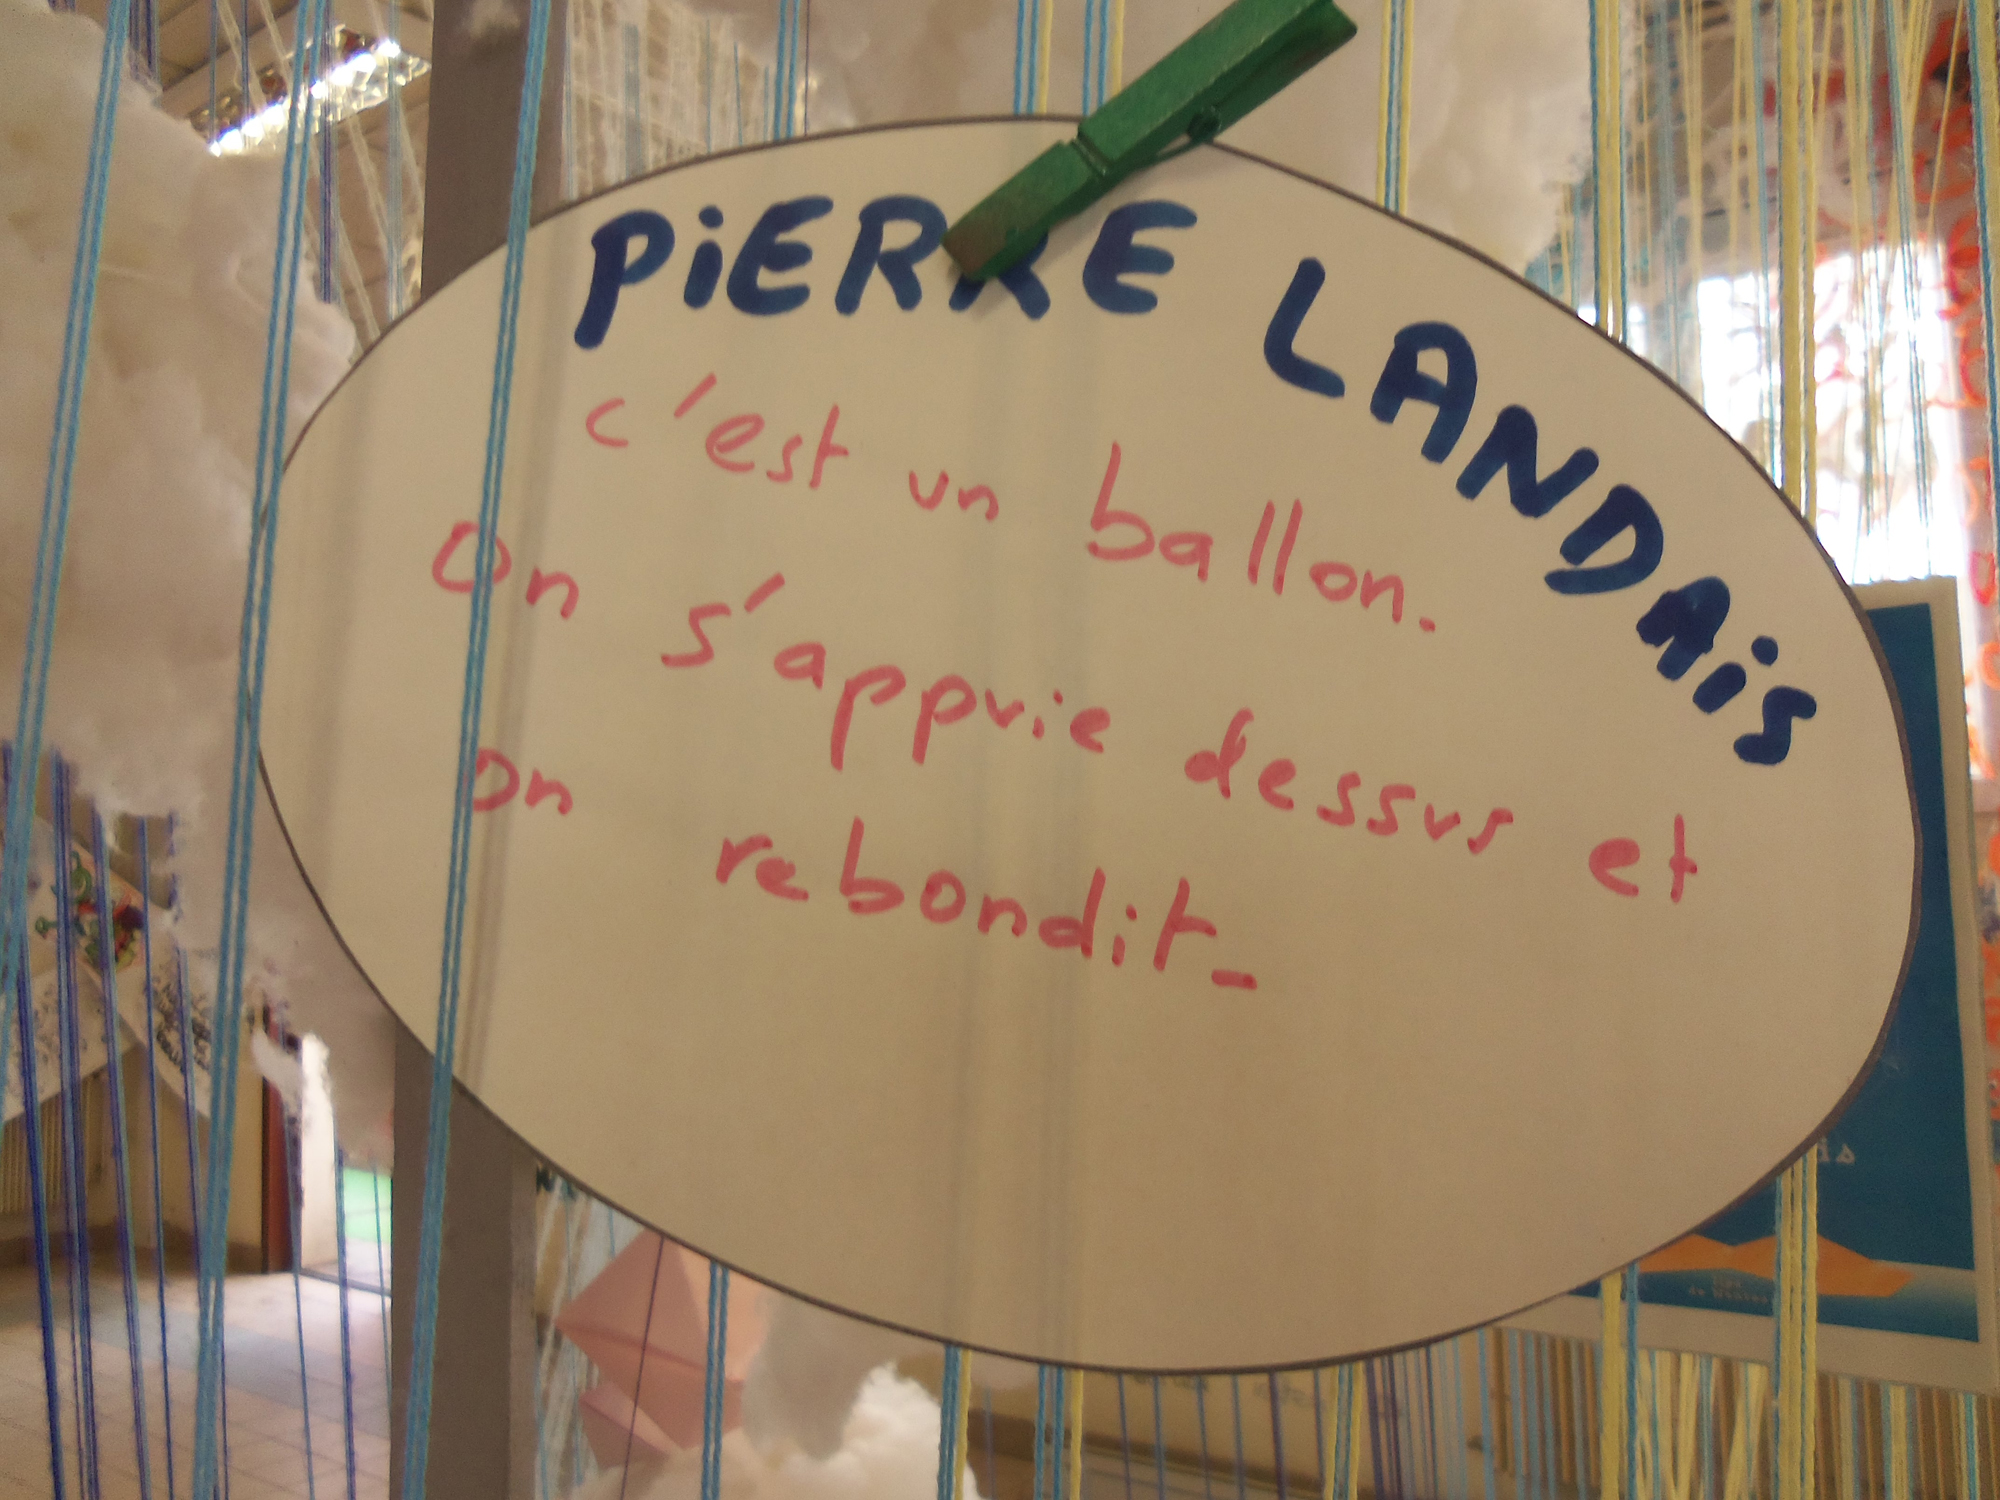 PiERRE LANDAiS
c'est un ballon.
On s'appuie dessus et
on rebondit_